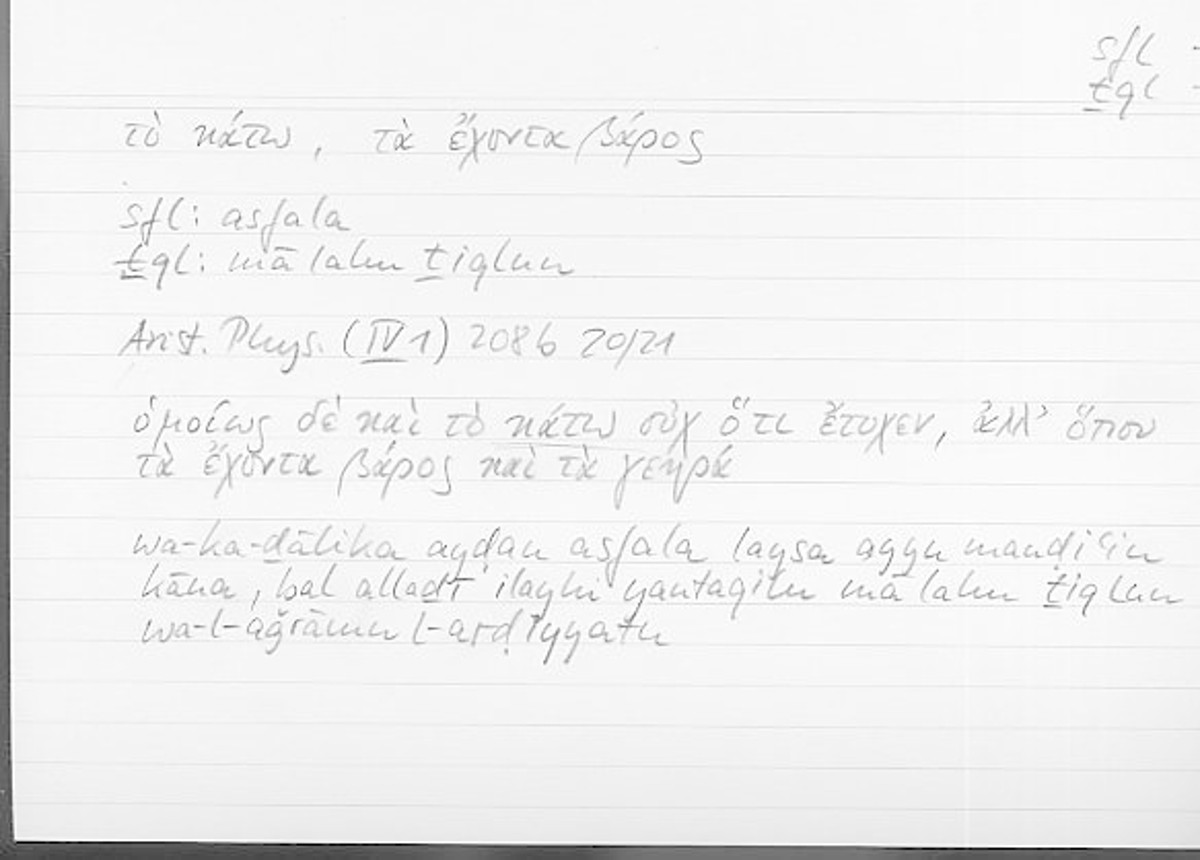 sfl -
ṯql -
τὸ κάτω, τὰ ἔχοντα βάρος
sfl: asfala
ṯql: mā lahu ṯiqlun
Arist. Phys. (IV 1) 208 b 20/21
ὁμοίως δὲ καὶ τὸ κάτω οὐχ ὅτι ἔτυχεν, ἀλλ' ὅπου
τὰ ἔχοντα βάρος καὶ τὰ γεηρά
wa-ka-ḏālika ayḍan asfala laysa ayyu mauḍiʿin
kāna, bal allaḏī ilayhi yantaqilu mā lahu ṯiqlun
wa-l-aǧrāmu l-arḍīyyatu